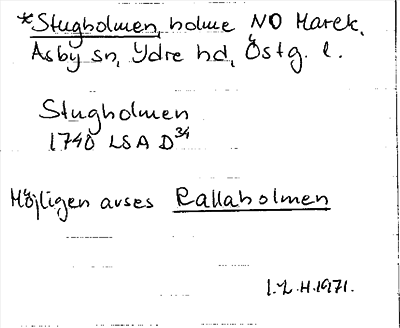 *Stugholmen, holme NO Marek,
Asby sn, Ydre hd, Östg. l.
Stugholmen
1740 LSA D34
Möjligen avses Rallaholmen
I.L.H.1971.